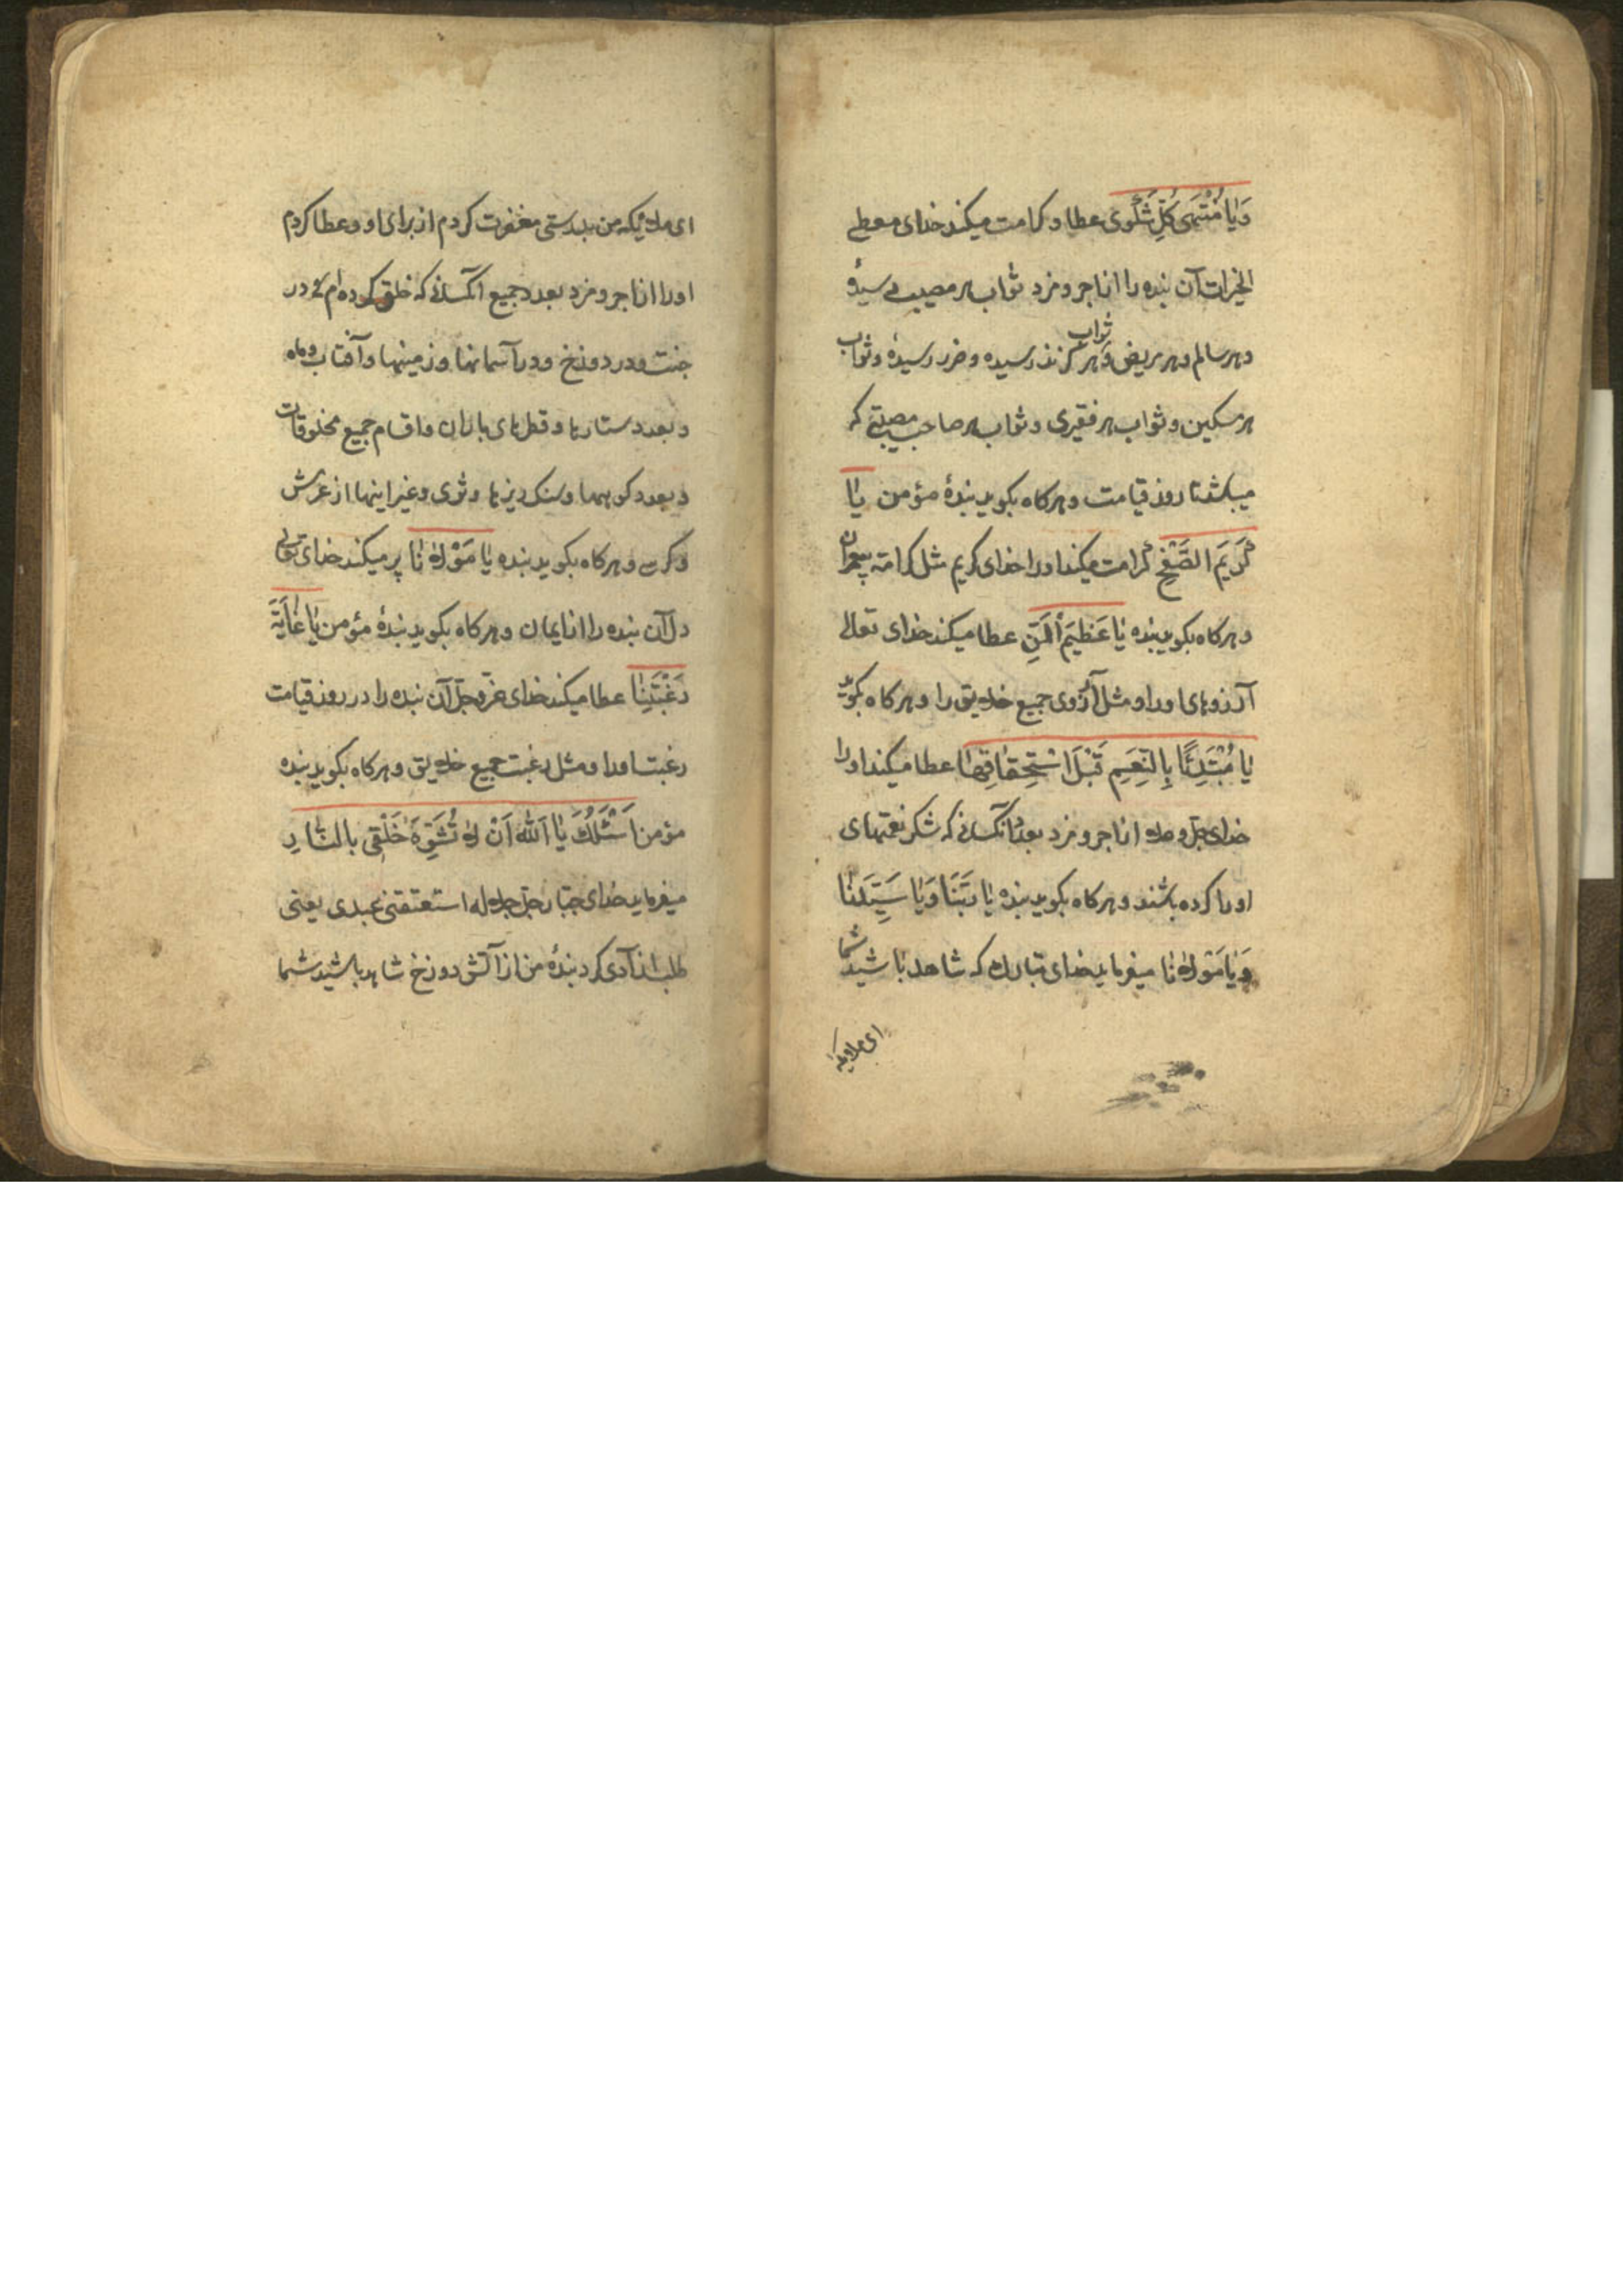 وَیٰا مُنْتَهىٰ كُلِّ شَكْوىٰ عطا و کرامت میکند خدای معطی
الخیرات آن بنده را از اجر و مزد ثواب هر مصیبت رسیدهٔ
و هر سالم و هر مریض و ثواب هر گزند رسیده و ضرر رسیدهٔ و ثواب
هر مسکین و ثواب هر فقیری و ثواب هر صاحب مصیبتی که
میباشد تا روز قیامت و هرکاه بکوید بندهٔ مؤمن یٰا
كَریَم الصَّفْحِ کرامت میکند او را خدای کریم مثل کرامت پیغمبران
و هرکاه بکوید بنده یٰا عَظیَم اْلمَنِّ عطا میکند خدای تعالی
آرزوهای او را و مثل آرزوی جمیع خلایق را و هرکاه بکوید
یٰا مُبْتَدِئًا بِالنِّعَمِ قَبْلَ اسْتِحْقٰاقِهٰا عطا میکند او را
خدای جل و علا از اجر و مزد بعدد آنکسانی که شکر نعمتهای
او را کرده باشند و هرکاه بکوید بنده یٰا رَبَّنٰا وَیٰا سَیِّدَنٰا
وَیٰا مَوْلاٰنٰا میفرماید خدای تبارک که شاهد باشید شما
ای ملائیکه
ای ملائیکه من بدرستی مغفرت کردم از برای او و عطا کردم
او را از اجر و مزد بعدد جمیع آنکسانی که خلق کرده‌ام در
جنت و در دوزخ و در آسمانها و زمینها و آفتاب و ماه
و بعدد ستارها و قطرهای باران و اقسام جمیع مخلوقات
و بعدد کوهها و سنک ریزها و ثری و غیر اینها از عرش
و کرسی و هرکاه بکوید بنده یٰا مَوْلاٰنٰا پر میکند خدای تعالی
دل آن بنده را از ایمان و هرکاه بکوید بندهٔ مؤمن یٰا غٰایَةَ
رَغْبَتِنٰا عطا میکند خدای عزّ و جلّ آن بنده را در روز قیامت
رغبت او را و مثل رغبت جمیع خلایق و هرکاه بکوید بنده
مؤمن اَسْئَلُكَ یٰا اَللّٰهُ اَنْ لاٰ تُشَوِّهَ خَلْقی بالنّٰارِ
میفرماید خدای جبّار جلّ جلاله استعتقنی عبدی یعنی
طلب آزادی کرد بندهٔ من از آتش دوزخ شاهد باشید شما